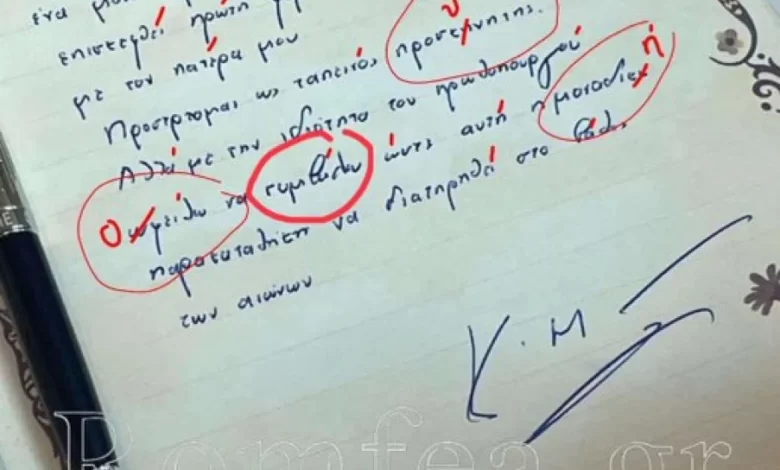 ένα μο
επισκεφθεί πρώτη
με τον πατέρα μου
Προσέρχομαι ως ταπεινός προσκηνητής.
υ
Αλλά με την ιδιότητα του πρωθυπουργού
ωφείλω να συμβάλω ώστε αυτή η μοναδικ
ο
ή
παρακαταθήκη να διατηρηθεί στο βάθος
των αιώνων
K. M
Romfea.gr